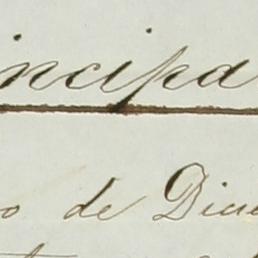 incipa
o de Dic